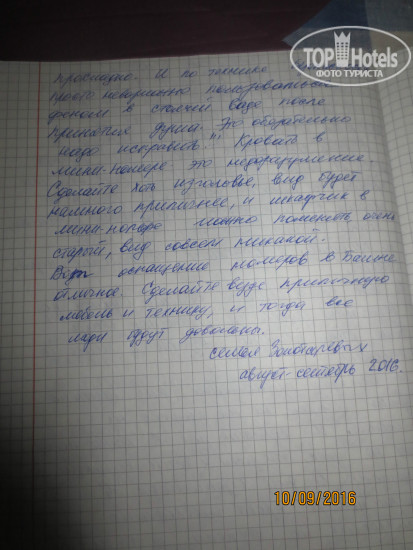 TOP Hotels
ФОТО ТУРИСТА
И по технике
просто невозможно пользоваться
феном в стоячей воде после
принятия душа. Это обязательно
надо исправить!!! Кровать в
мини-номере это недоразумение.
Сделайте хоть изголовье, вид будет
намного приличнее, и шкафчик в
мини-номере можно поменять, очень
старый, вид совсем никакой.
Вот оснащение номеров в Башне
отличное. Сделайте везде приличную
мебель и технику, и тогда все
люди будут довольны.
семья
август-сентябрь 2016.
10/09/2016